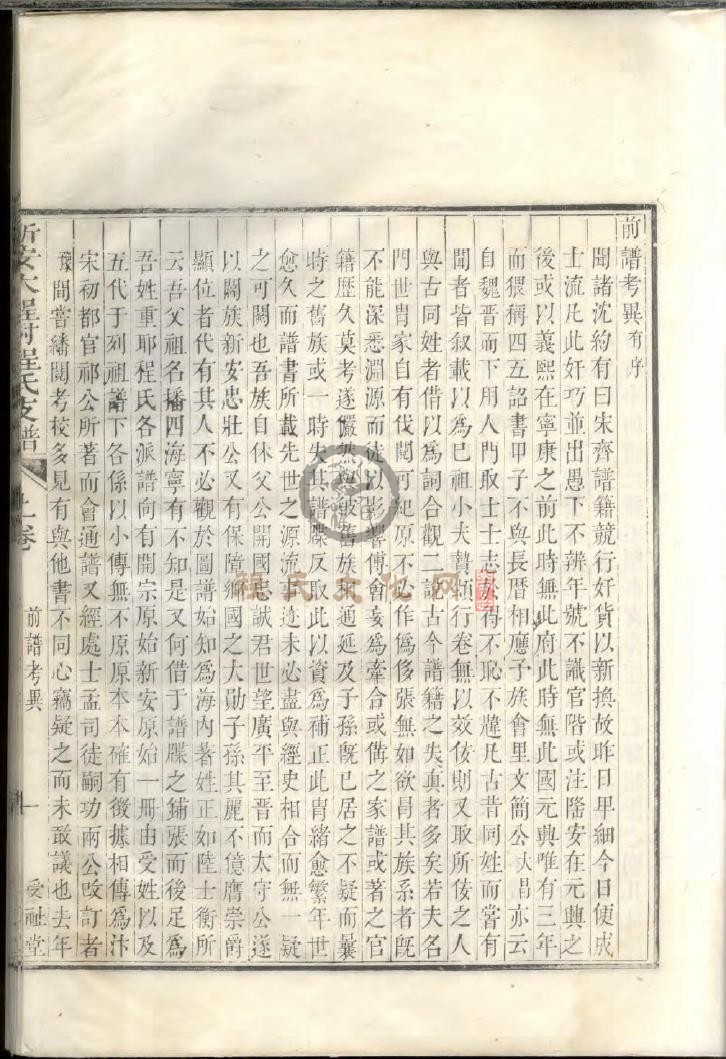 前譜考異有序
聞諸沈約有曰宋齊譜籍競行奸貨以新換故昨日卑細今日便成
士流凡此奸巧並出愚下不辨年號不識官階或注隆安在元興之
後或以義熙在寧康之前此時無此府此時無此國元興唯有三年
而猥稱四五詔書甲子不與長曆相應予族會里文簡公大昌亦云
自魏晉而下用人門取士士志於得不恥不韙凡古昔同姓而嘗有
聞者皆叙載以爲已祖小夫贄傾行卷無以效佞則又取所佞之人
與古同姓者借以爲詞合觀二說古今譜籍之失眞者多矣若夫名
門世胄家自有伐閱可紀原不必作爲侈張無如欲冐其族系者旣
不能深悉淵源而徒以影響傅會妄爲牽合或備之家譜或著之官
籍歷久莫考遂儼然彼舊族通延及子孫旣已居之不疑而曩
時之舊族或一時失其譜牒反取此以資爲補正此胄緒愈繁年世
愈久而譜書所載先世之源流迹未必盡與經史相合而無一疑
之可闕也吾族自休父公開國忠誠君世望廣平至晉而太守公遂
以闢族新安忠壯公又有保障鄉國之大勛子孫其麗不億膺崇爵
顯位者代有其人不必觀於圖譜始知爲海內著姓正如陸士衡所
云吾父祖名播四海寧有不知是又何借于譜牒之鋪張而後足爲
吾姓重耶程氏各派譜向有開宗原始新安原始一冊由受姓以及
五代于列祖譜下各係以小傳無不原原本本確有徵據相傳爲汴
宋初都官祁公所著而會通譜又經處士孟司徒嗣功兩公攺訂者
㸑間嘗繙閱考校多見有與他書不同心竊疑之而未敢議也去年
新安大程村程氏支譜
上卷
前譜考異
一
受祉堂
程氏文化网